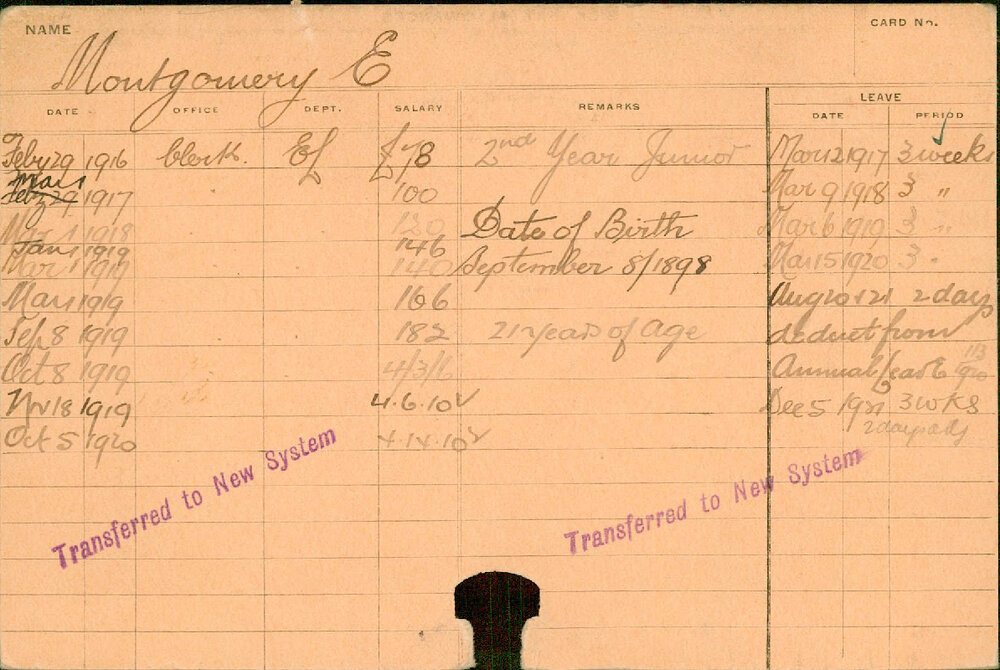 NAME
CARD No.
Montgomery E
DATE OFFICE DEPT. SALARY REMARKS LEAVE
DATE PERIOD
Feby 29 1916 Clerk. £78 2nd Year Junior Mar 12 1917 3 weeks
Mar 1
Feby 29 1917 100 Mar 9 1918 3 "
Mar 1 1918 120 Date of Birth Mar 6 1919 3 "
Jan 1 1919 146
Mar 1 1919 140 September 8/1898 Mar 15 1920 3 "
Mar 1919 166 Aug 20 & 21 2 days
Sep 8 1919 182 21 years of age deduct from
Oct 8 1919 4/3/6 Annual Leave
Nov 18 1919 4.6.10 Dec 5 1921 3 wks
Oct 5 1920 4.14.10 2 days
Transferred to New System
Transferred to New System